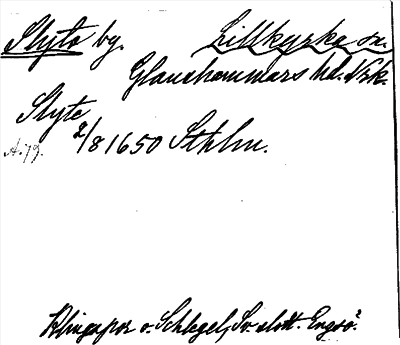 Slyte by. Lillkyrka sn.
Glanshammars hd. Nrk.
Slyte
2/8 1650 Sthlm.
A. 79.
Klingspor o. Schlegel, Sv. slott. Engsö.